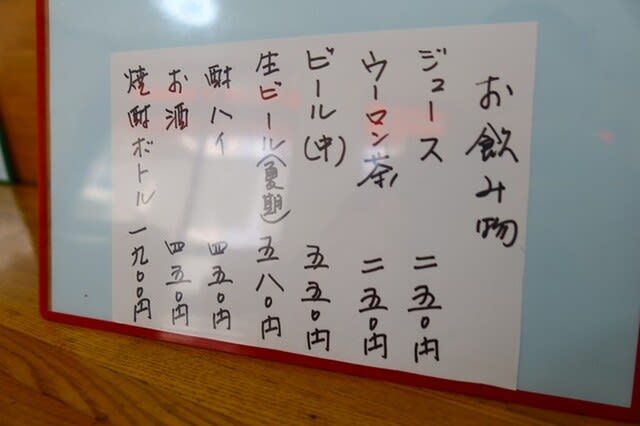 お飲み物
ジュース 二五〇円
ウーロン茶 二五〇円
ビール(中) 五五〇円
生ビール(夏期) 五八〇円
酎ハイ 四五〇円
お酒 四五〇円
焼酎ボトル 一九〇〇円